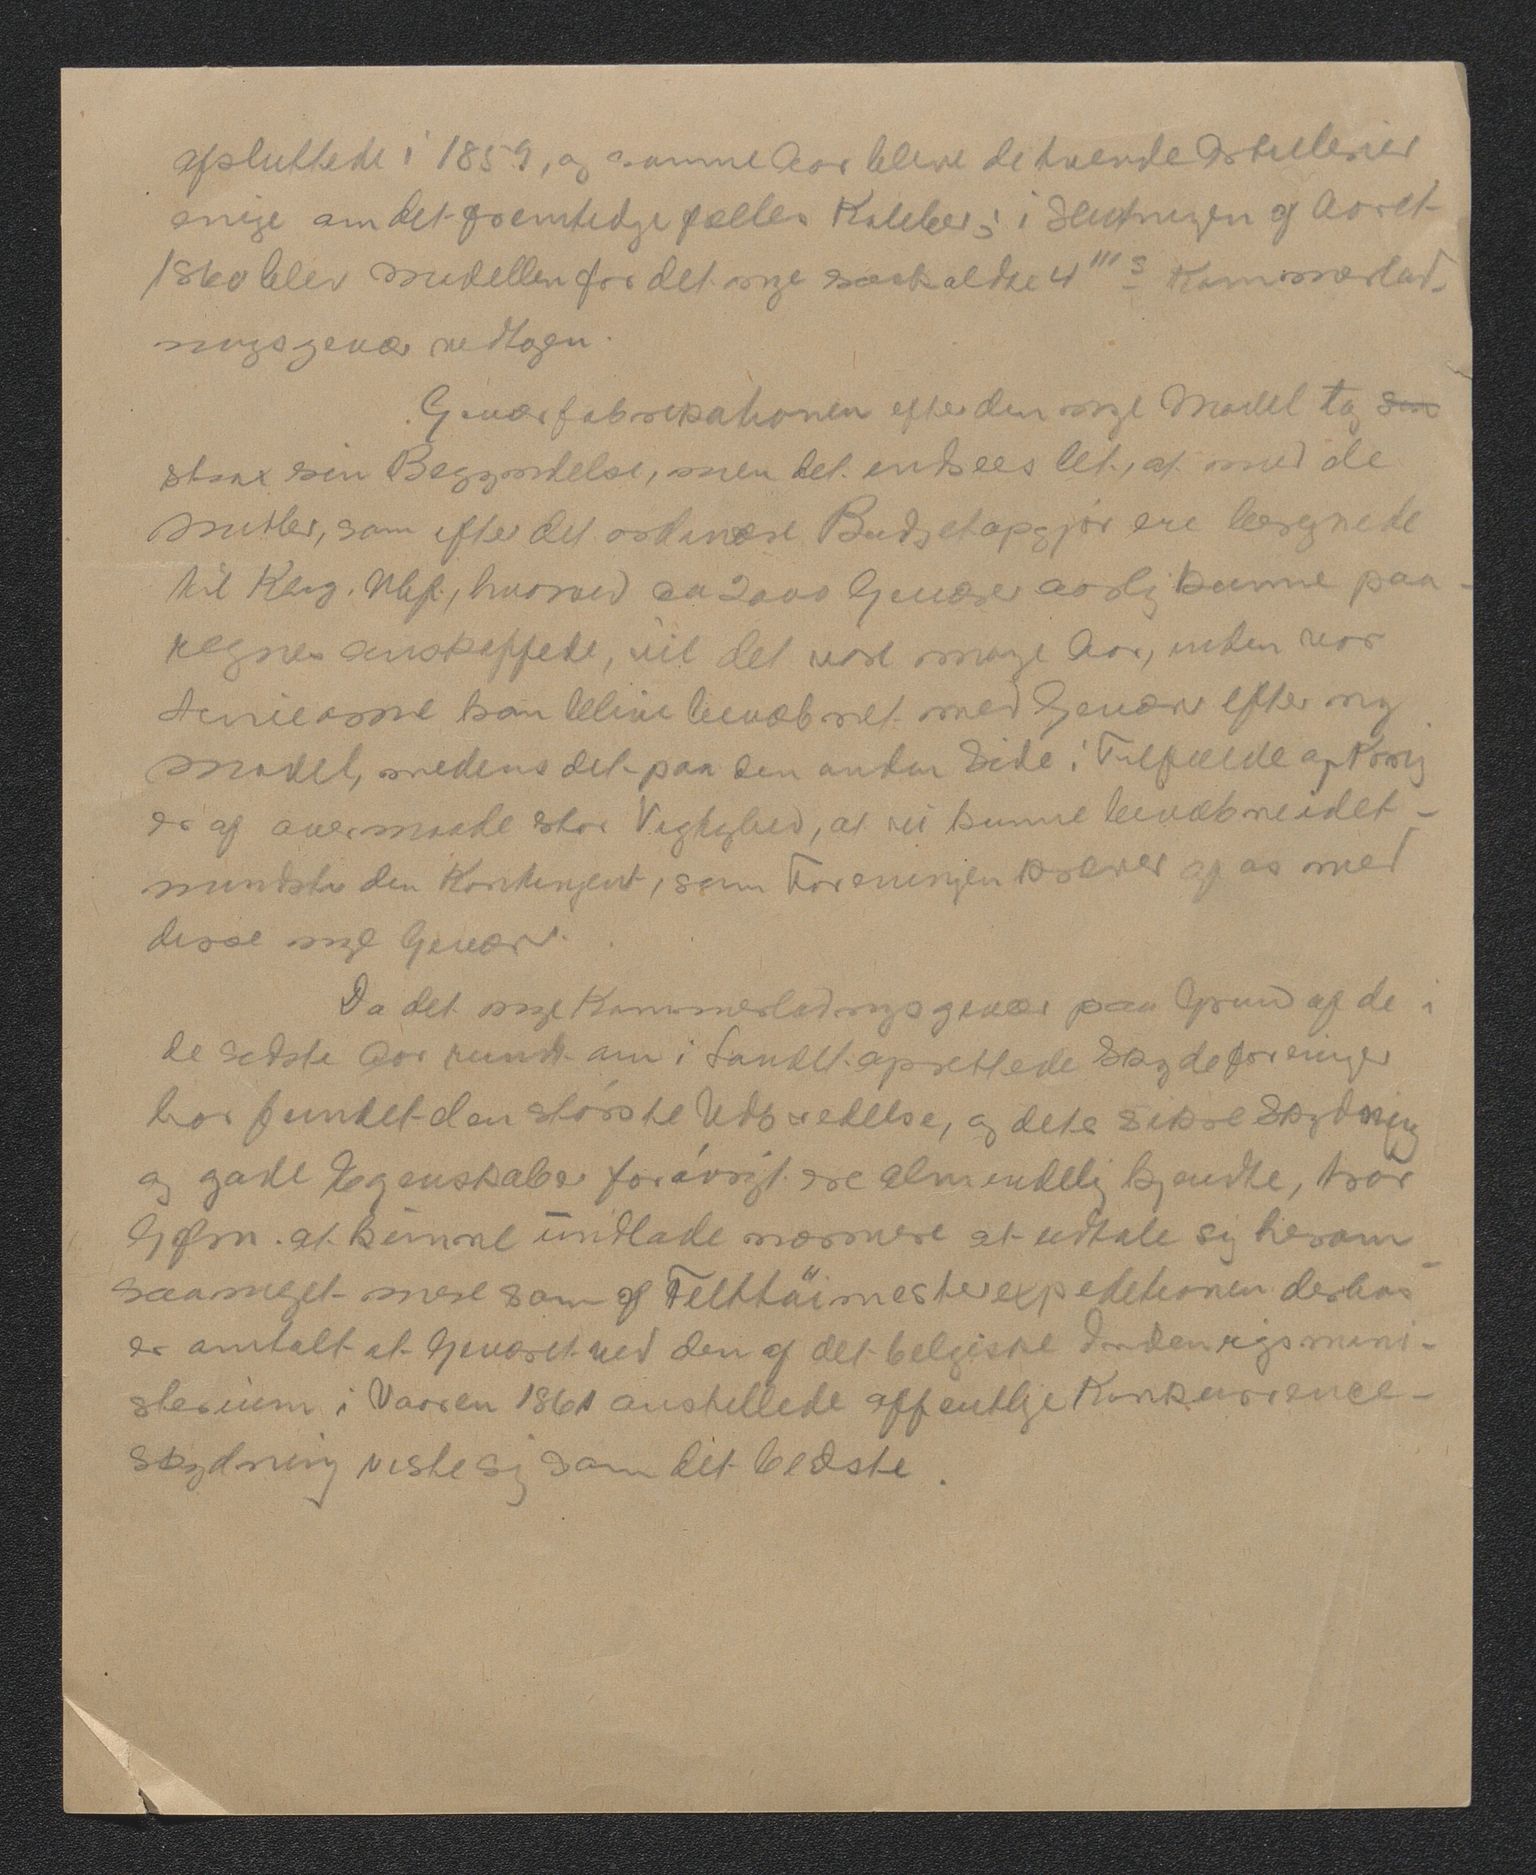 afsluttede i 1859, og samme Aar bleve de tvende Artillerier
enige om det fremtidige fælles Kaliber; i Slutningen af Aaret
1860 blev Modellen for det nye saakaldte 4'''s Kammerlad-
ningsgevær vedtagen.
Geværfabrikationen efter den nye Model tog sin
strax sin Begyndelse, men det indsees let, at med de
Midler, som efter det ordinære Budgetopgjør ere beregnede
til Kbrg. Vbf., hvorved ca 2000 Geværer aarlig kunne paa-
regnes anskaffede, vil det vare mange Aar, inden vor
Liniearme kan blive bevæbnet med Geværer efter ny
Model, medens det paa den anden Side i Tilfælde af Krig
er af overmaade stor Vigtighed, at vi kunne bevæbne idet-
mindste den Kontingent, som Foreningen kræver af os med
disse nye Geværer.
Da det nye Kammerladningsgevær paa Grund af de i
de sidste Aar rundt om i Landet oprettede Skydeforeninger
har fundet den største Udbredelse, og dets sikre Skydning
og gode Egenskaber forøvrigt ere almindelig kjendte, tror
Gfm. at kunne undlade nærmere at udtale sig herom
saameget mere som af Felttøimesterexpeditionen derhos
er omtalt at Geværet ved den af det belgiske Indenrigsmini-
sterium i Vaaren 1861 anstillede offentlige Konkurrence-
skydning viste sig som det bedste.